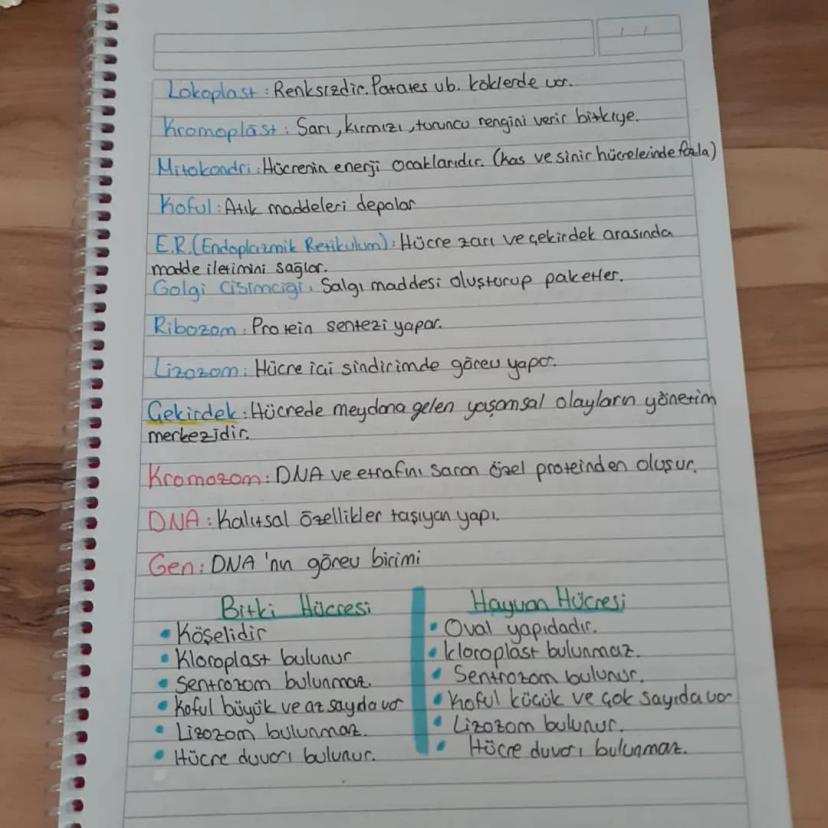 Lokoplast: Renksizdir. Patates vb. köklerde var.
Kromoplast: Sarı, kırmızı, turuncu rengini verir bitkiye.
Mitokondri: Hücrenin enerji ocaklarıdır. (kas ve sinir hücrelerinde fazla)
Koful: Atık maddeleri depolar
E.R. (Endoplazmik Retikulum): Hücre zarı ve çekirdek arasında
madde iletimini sağlar.
Golgi Cisimciği: Salgı maddesi oluşturup paketler.
Ribozom: Protein sentezi yapar.
Lizozom: Hücre içi sindirimde görev yapar.
Çekirdek: Hücrede meydana gelen yaşamsal olayların yönetim
merkezidir.
Kromozom: DNA ve etrafını saran özel proteinden oluşur.
DNA: Kalıtsal özellikler taşıyan yapı.
Gen: DNA'nın görev birimi
Bitki Hücresi
• Köşelidir
• Kloroplast bulunur
• Sentrozom bulunmaz.
• Koful büyük ve az sayıda var
• Lizozom bulunmaz.
• Hücre duvarı bulunur.
Hayvan Hücresi
• Oval yapıdadır.
• kloroplast bulunmaz.
• Sentrozom bulunur.
• Koful küçük ve çok sayıda var
• Lizozom bulunur.
• Hücre duvarı bulunmaz.